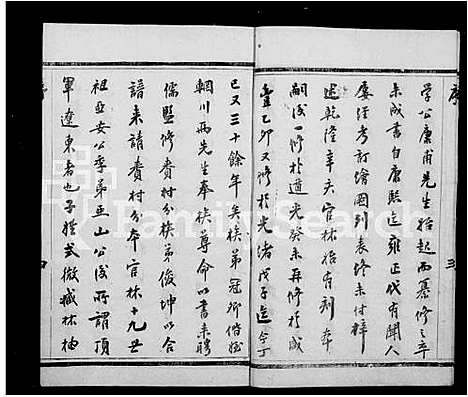 序
三
学公廉甫先生始起而纂修之卒
未成書自康熙迄雍正代有聞人
屢経考訂繪圖列表終未付梓
迨乾隆辛亥官林始有刻本
嗣後一修於道光癸未再修於咸
豊乙卯又修於光緒戊子迄今丁
巳又三十餘年矣族弟冠卿偕姪
輞川兩先生奉族尊命以書来聘
儒監修費村分族弟俊坤以合
譜来請費村分本官林十九世
祖亞安公季弟亞山公後所謂頂
軍遼東者也子姓式微臧林柚
FamilySearch